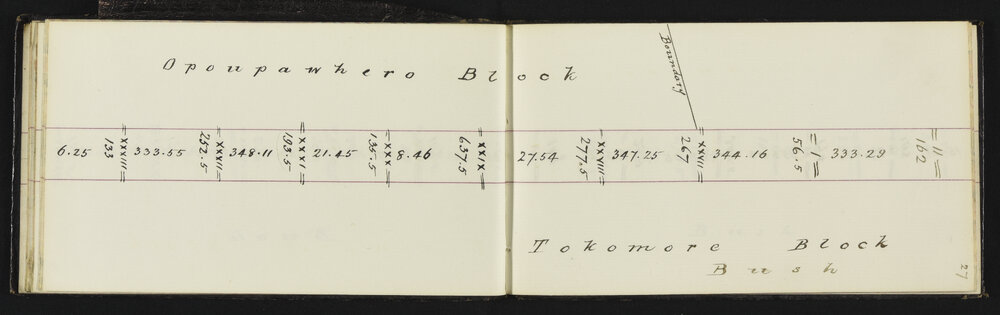 Opoupawhero Block
Boundary
6.25
=XXXIII=
133
333.55
=XXXII=
252.5
348.11
=XXXI=
193.5
21.45
=XXX=
135.5
8.46
=XXIX=
637.5
27.54
=XXVIII=
277.5
347.25
=XXVII=
267
344.16
=I=
56.5
333.29
=II=
162
Tokomore Block
Bush
27